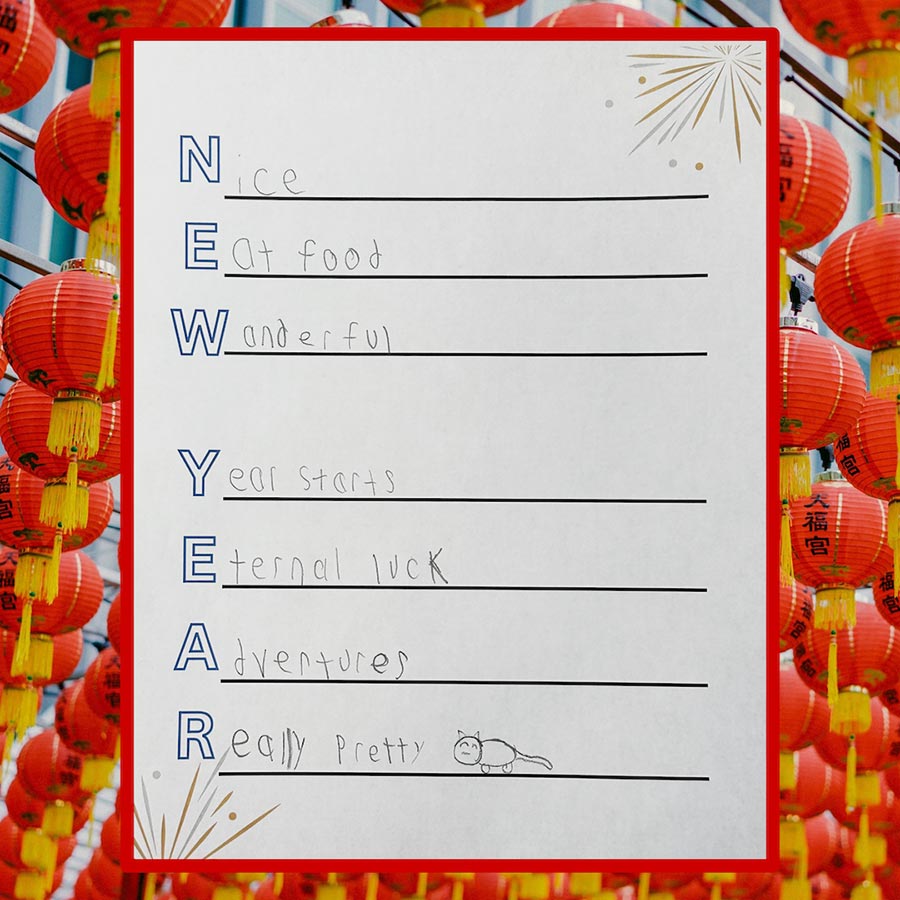 Nice
Eat food
Wonderful
Year starts
Eternal luck
Adventures
Really Pretty
大福宮